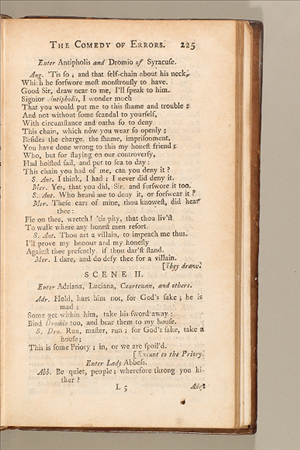 THE COMEDY OF ERRORS. 225
Enter Antipholis and Dromio of Syracuse.
Ang. 'Tis so; and that self-chain about his neck,
Which he forswore most monstrously to have.
Good Sir, draw near to me, I'll speak to him.
Signior Antipholis, I wonder much
That you would put me to this shame and trouble;
And not without some scandal to yourself,
With circumstance and oaths so to deny
This chain, which now you wear so openly;
Besides the charge, the shame, imprisonment,
You have done wrong to this my honest friend;
Who, but for staying on our controversy,
Had hoisted sail, and put to sea to-day:
This chain you had of me, can you deny it?
S. Ant. I think, I had; I never did deny it.
Mer. Yes, that you did, Sir, and forswore it too.
S. Ant. Who heard me to deny it, or forswear it?
Mer. These ears of mine, thou knowest, did hear
thee:
Fie on thee, wretch! 'tis pity, that thou liv'st
To walk where any honest men resort.
S. Ant. Thou art a villain, to impeach me thus.
I'll prove my honour and my honesty
Against thee presently, if thou dar'st stand.
Mer. I dare, and do defy thee for a villain.
[They draw.
SCENE II.
Enter Adriana, Luciana, Courtezan, and others.
Adr. Hold, hurt him not, for God's sake; he is
mad;
Some get within him, take his sword away:
Bind Dromio too, and bear them to my house.
S. Dro. Run, master, run; for God's sake, take a
house;
This is some Priory; in, or we are spoil'd.
[Exeunt to the Priory.
Enter Lady Abbess.
Abb. Be quiet, people; wherefore throng you hi-
ther?
L 5